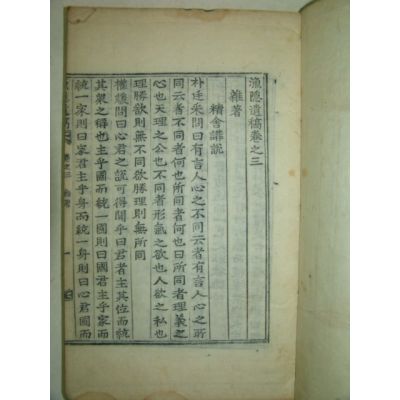 漁隱遺稿卷之三
雜著
精舍講說
朴廷采問曰有言人心之不同云者有言人心之所
同云者不同者何也所同者何也曰所同者理義之
心也天理之公也不同者形氣之欲也人欲之私也
理勝欲則無不同欲勝理則無所同
權問曰心君之說可得聞乎曰君者主其位而統
其衆之稱也主乎國而統一國則曰國君主乎家而
統一家則曰家君主乎身而統一身則曰心君國而
卷之三
一